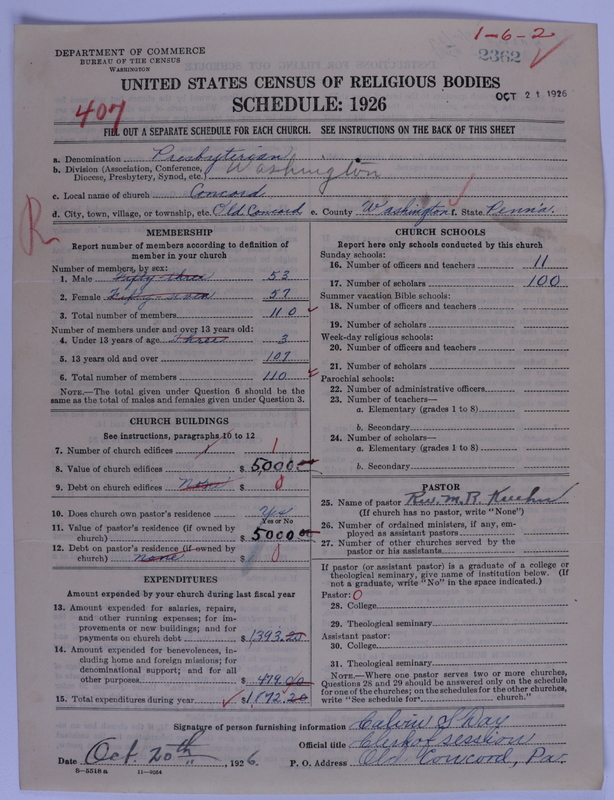 1-6-2
DEPARTMENT OF COMMERCE
BUREAU OF THE CENSUS
WASHINGTON
2362
UNITED STATES CENSUS OF RELIGIOUS BODIES
OCT 21 1926
SCHEDULE: 1926
407
FILL OUT A SEPARATE SCHEDULE FOR EACH CHURCH. SEE INSTRUCTIONS ON THE BACK OF THIS SHEET
a. Denomination Presbyterian
b. Division (Association, Conference, Diocese, Presbytery, Synod, etc.) Washington
c. Local name of church Concord
d. City, town, village, or township, etc. Old Concord e. County Washington f. State Penn'a.
R
MEMBERSHIP
Report number of members according to definition of
member in your church
Number of members, by sex:
1. Male Fifty-three 53
2. Female Fifty-seven 57
3. Total number of members 110
Number of members under and over 13 years old:
4. Under 13 years of age Three 3
5. 13 years old and over 107
6. Total number of members 110
NOTE.—The total given under Question 6 should be the
same as the total of males and females given under Question 3.
CHURCH BUILDINGS
See instructions, paragraphs 10 to 12
7. Number of church edifices 1 1
8. Value of church edifices $ 5,000.00
9. Debt on church edifices None $ 0
10. Does church own pastor's residence Yes
Yes or No
11. Value of pastor's residence (if owned by
church) $ 5000.00
12. Debt on pastor's residence (if owned by
church) None $ 0
EXPENDITURES
Amount expended by your church during last fiscal year
13. Amount expended for salaries, repairs,
and other running expenses; for im-
provements or new buildings; and for
payments on church debt $ 1,393.20
14. Amount expended for benevolences, in-
cluding home and foreign missions; for
denominational support; and for all
other purposes 479.00
15. Total expenditures during year $ 1872.20
CHURCH SCHOOLS
Report here only schools conducted by this church
Sunday schools:
16. Number of officers and teachers 11
17. Number of scholars 100
Summer vacation Bible schools:
18. Number of officers and teachers
19. Number of scholars
Week-day religious schools:
20. Number of officers and teachers
21. Number of scholars
Parochial schools:
22. Number of administrative officers
23. Number of teachers—
a. Elementary (grades 1 to 8)
b. Secondary
24. Number of scholars—
a. Elementary (grades 1 to 8)
b. Secondary
PASTOR
25. Name of pastor Rev. M. R. Kuehn
(If church has no pastor, write "None")
26. Number of ordained ministers, if any, em-
ployed as assistant pastors
27. Number of other churches served by the
pastor or his assistants
If pastor (or assistant pastor) is a graduate of a college or
theological seminary, give name of institution below. (If
not a graduate, write "No" in the space indicated.)
Pastor: 0
28. College
29. Theological seminary
Assistant pastor:
30. College
31. Theological seminary
NOTE.—Where one pastor serves two or more churches,
Questions 28 and 29 should be answered only on the schedule
for one of the churches; on the schedules for the other churches,
write "See schedule for church."
Signature of person furnishing information Calvin S Day
Official title Clerk of session
Date Oct. 20th, 1926 P. O. Address Old Concord, Pa.
8-5518 a 11-9254